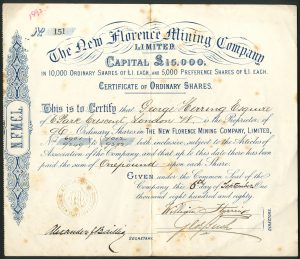 No 151
The New Florence Mining Company
LIMITED.
CAPITAL £15,000.
IN 10,000 ORDINARY SHARES OF £1. EACH, AND 5,000 PREFERENCE SHARES OF £1. EACH.
CERTIFICATE OF ORDINARY SHARES.
This is to Certify that George Herring Esquire
of 6 Park Crescent London W. is the Proprietor of
Ordinary Shares in THE NEW FLORENCE MINING COMPANY, LIMITED,
both inclusive, subject to the Articles of
Association of the Company, and that up to this date there has been
paid the sum of One pound upon each Share.
GIVEN under the Common Seal of the
Company this 8th day of September One
thousand eight hundred and eighty.
William
DIRECTORS.
SECRETARY.
N.F.M.C.L.